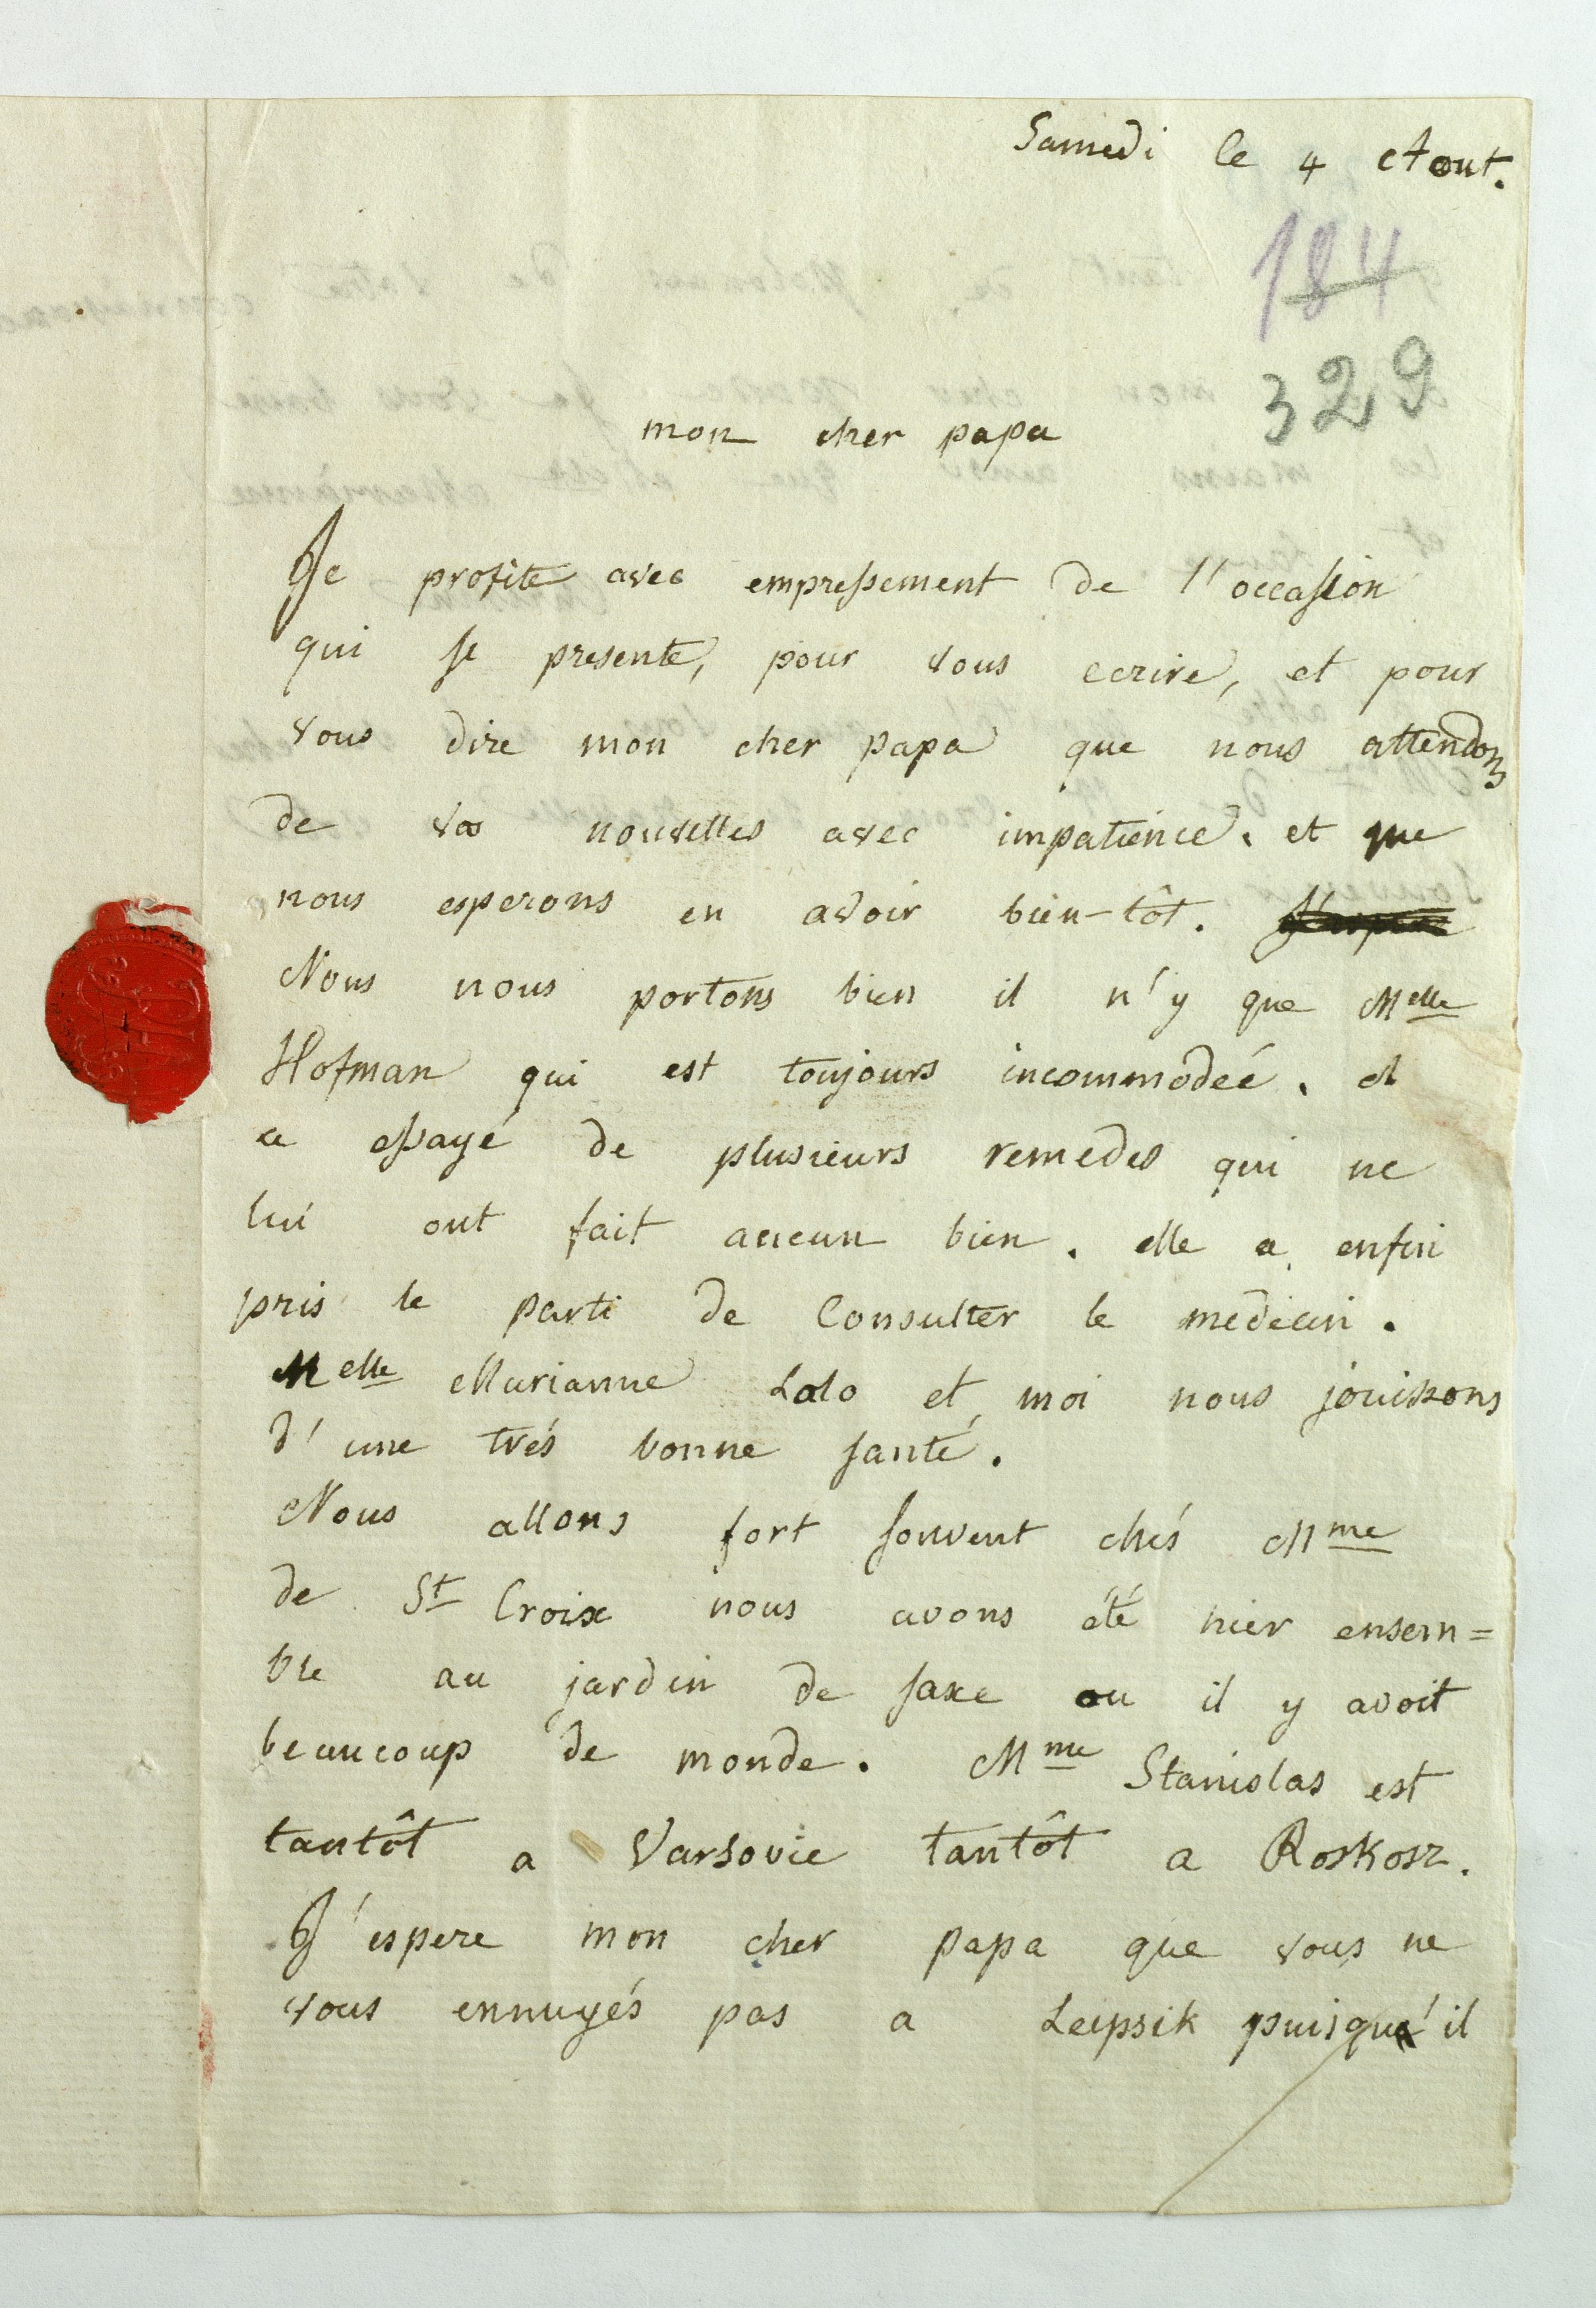 Samedi le 4 Aout.
184
329
mon cher papa
Je profite avec empressement de l'occassion
qui se presente, pour vous ecrire, et pour
vous dire mon cher papa que nous attendons
de vos nouvelles avec impatience. et que
nous esperons en avoir bien-tôt.
Nous nous portons bien il n'y que Melle
Hofman qui est toujours incommodeé. et
a essayé de plusieurs remedes qui ne
lui ont fait aucun bien. elle a enfin
pris le parti de Consulter le medecin.
Melle Marianne Lolo et moi nous jouissons
d'une trés bonne santé.
Nous allons fort souvent chés Mme
de St Croix nous avons été hier ensem=
ble au jardin de saxe ou il y avoit
beaucoup de monde. Mme Stanislas est
tantôt a Varsovie tantôt a Roskosz.
J'espere mon cher papa que vous ne
vous ennuyés pas a Leipsik puisqu'il